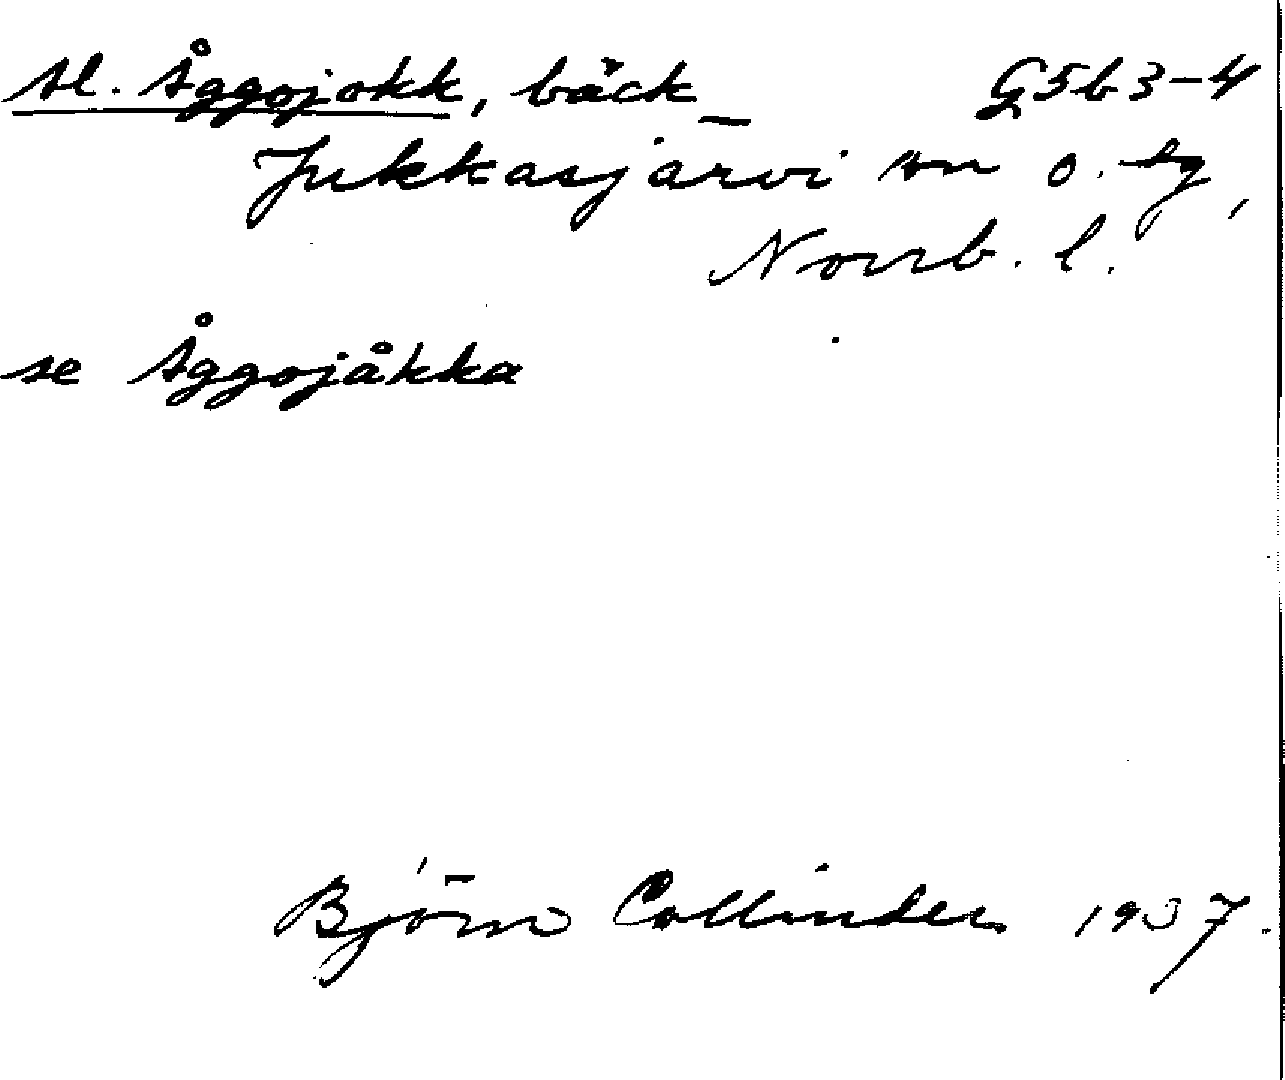 sl. Åggojokk, bäck G5b3-4
Jukkasjärvi sn o. tg,
Norrb. l.
se Åggojåkka
Björn Collinder 1937.